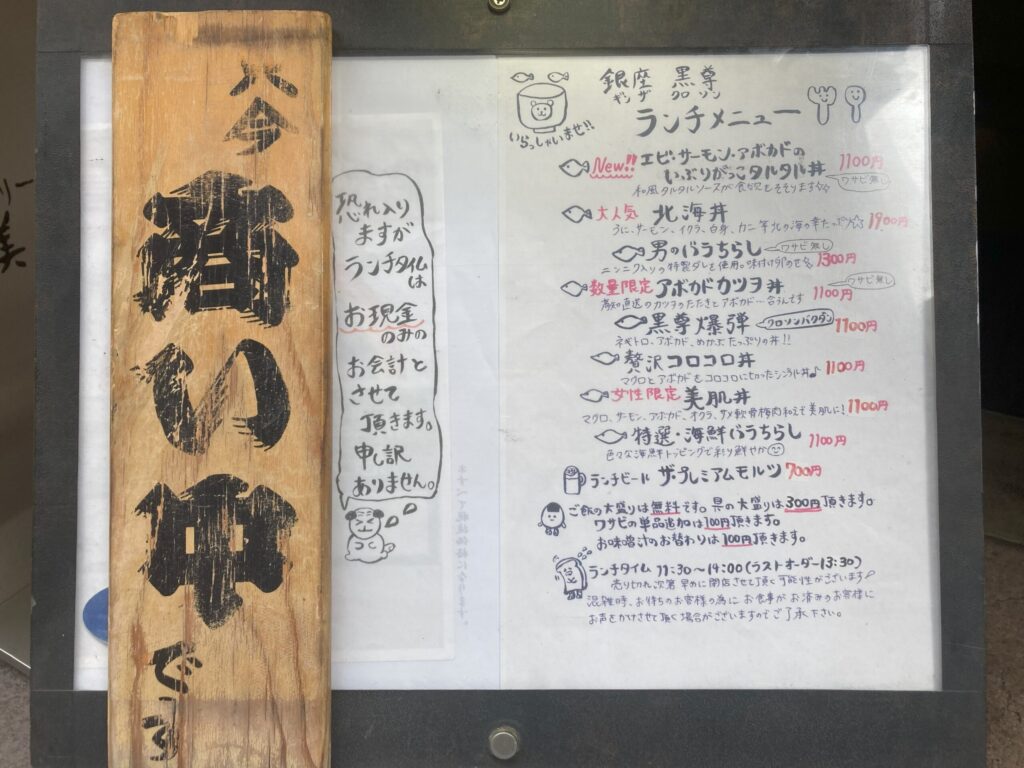 只今
商い中
です
恐れ入り
ますが
ランチタイム
は
お現金
のみの
お会計と
させて
頂きます。
申し訳
ありません。
いらっしゃいませ!!
銀座 黒尊
ギンザ クロソン
ランチメニュー
New!! エビ・サーモン・アボカドの
いぶりがっこタルタル丼 1100円
ワサビ無し
和風タルタルソースが食欲をそそります
大人気 北海丼
うに、サーモン、イクラ、白身、カニ等北の海の幸たっぷり 1900円
男のバラちらし ワサビ無し
ニンニク入りの特製ダレを使用。味付け卵のせ 1300円
数量限定 アボカドカツヲ丼 ワサビ無し
高知直送のカツヲのたたきとアボカド…合うんです 1100円
黒尊爆弾 クロソンバクダン 1100円
ネギトロ、アボカド、めかぶたっぷりの丼!!
贅沢コロコロ丼
マグロとアボカドをコロコロに切ったシンプル丼♪ 1100円
女性限定 美肌丼
マグロ、サーモン、アボカド、オクラ、サメ軟骨梅肉和えで美肌に! 1100円
特選・海鮮バラちらし
色々な海鮮トッピングで彩り鮮やか 1100円
ランチビール ザ・プレミアムモルツ 700円
ご飯の大盛りは無料です。具の大盛りは300円頂きます。
ワサビの単品追加は100円頂きます。
お味噌汁のお替わりは100円頂きます。
ランチタイム 11:30〜14:00(ラストオーダー13:30)
売り切れ次第早めに閉店させて頂く可能性がございます
混雑時、お待ちのお客様の為にお食事がお済みのお客様に
お声をかけさせて頂く場合がございますのでご了承下さい。